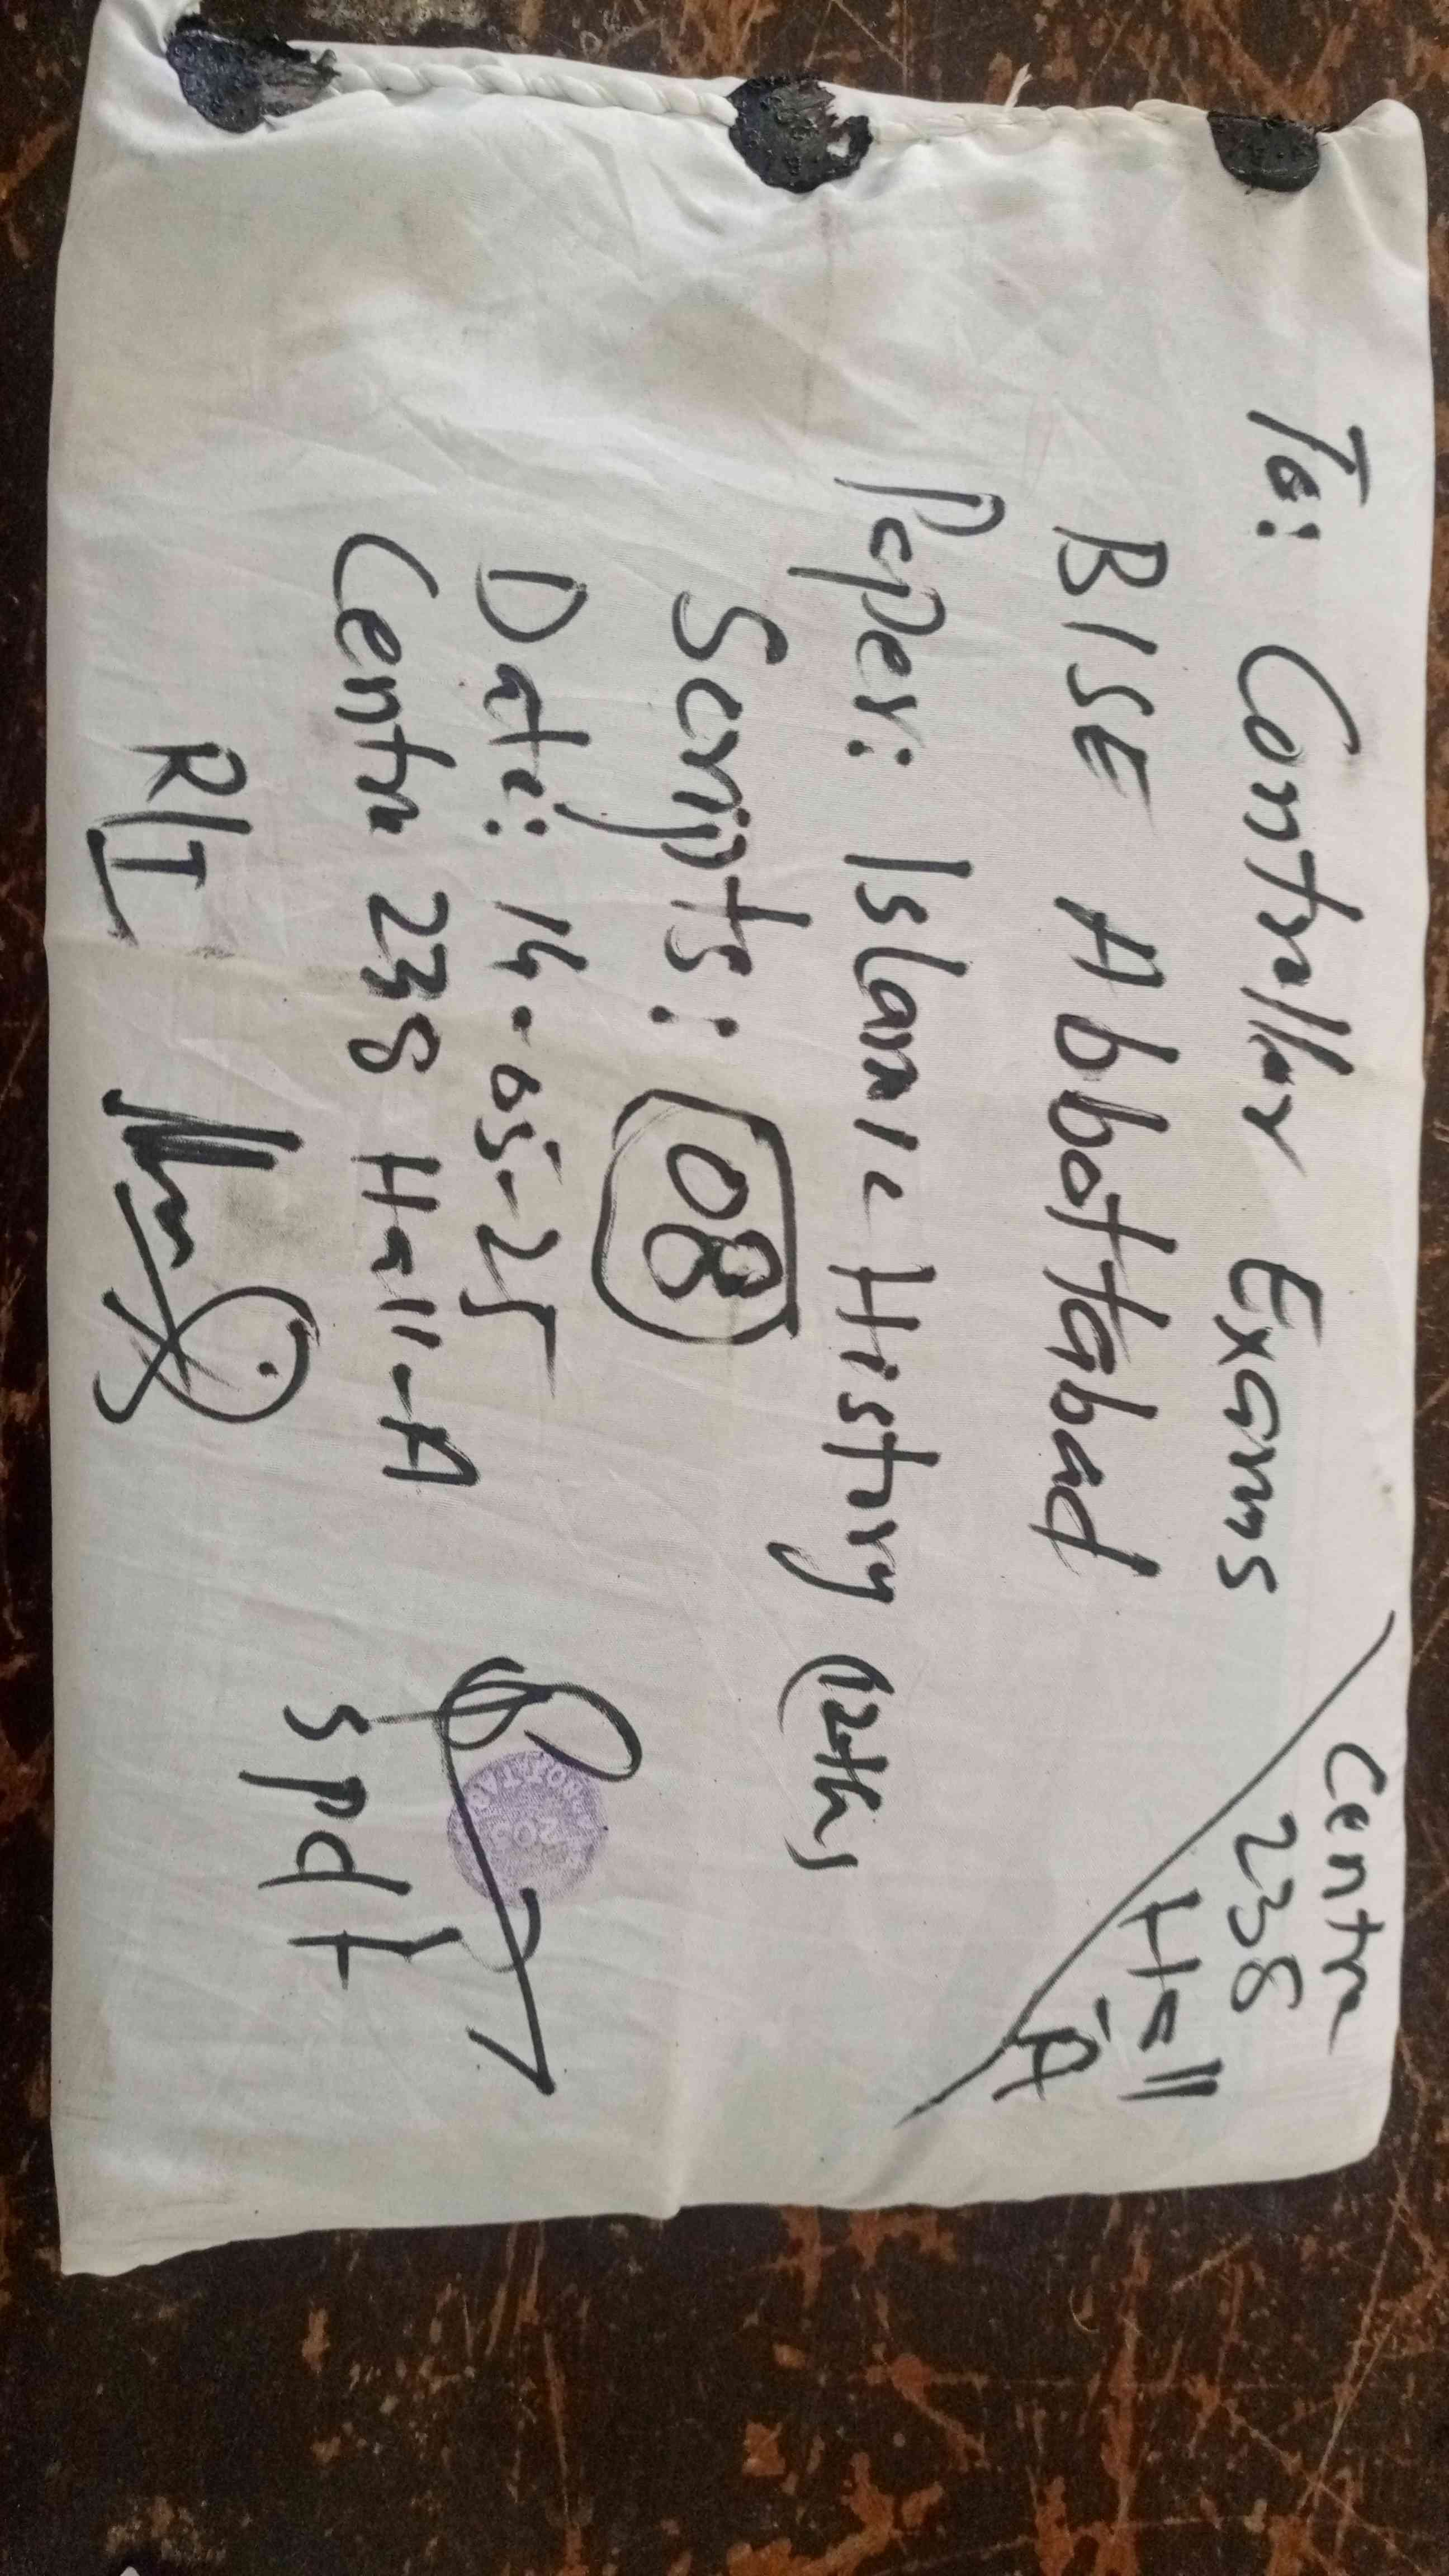 Centre
238
Hall
-A
To: Controller Exams
BISE Abbottabad
Paper: Islamic History (12th)
Scripts: 08
Date: 14-05-25
Centre 238 Hall-A
R/I
Spdt